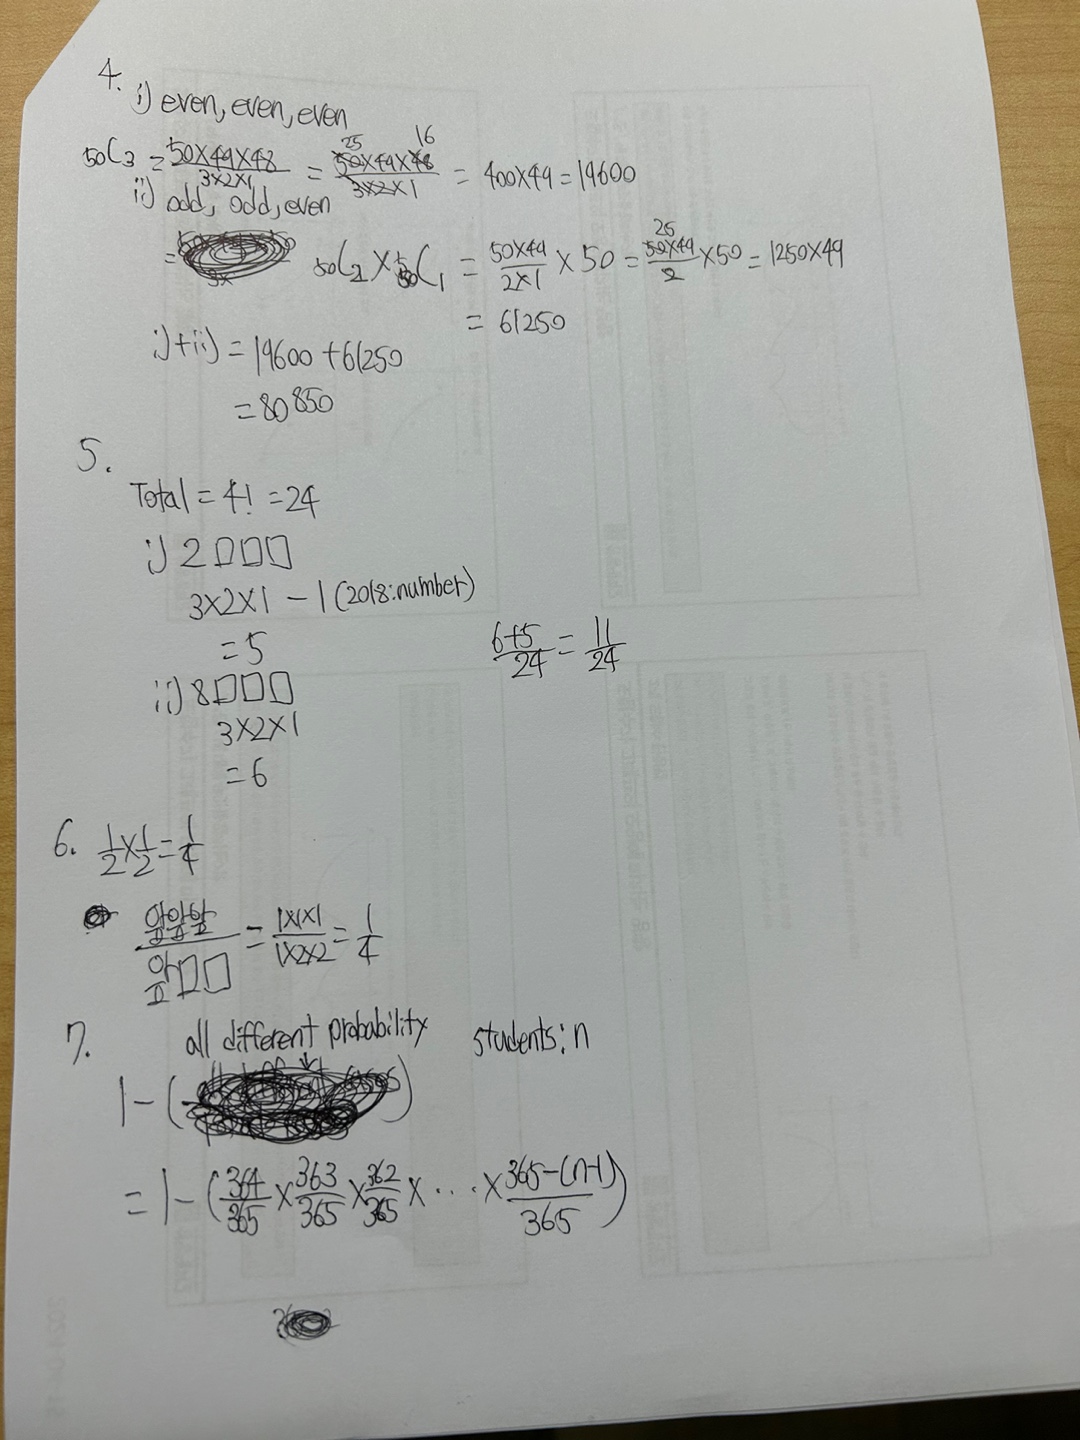 4.
i) even, even, even
50C3 = 50×49×48/3×2×1 = 50×49×48/3×2×1 = 400×49 = 19600
25 16
ii) odd, odd, even
= 50C2 × 50C1 = 50×49/2×1 × 50 = 50×49/2 × 50 = 1250×49
25
= 61250
i)+ii) = 19600 + 61250
= 80850
5.
Total = 4! = 24
i) 2□□□
3×2×1 - 1 (2018:number)
= 5
6+5/24 = 11/24
ii) 8□□□
3×2×1
= 6
6. 1/2 × 1/2 = 1/4
앞앞앞/앞□□ = 1×1×1/1×2×2 = 1/4
7. all different probability students: n
1 - ( )
= 1 - (364/365 × 363/365 × 362/365 × ... × 365-(n-1)/365)